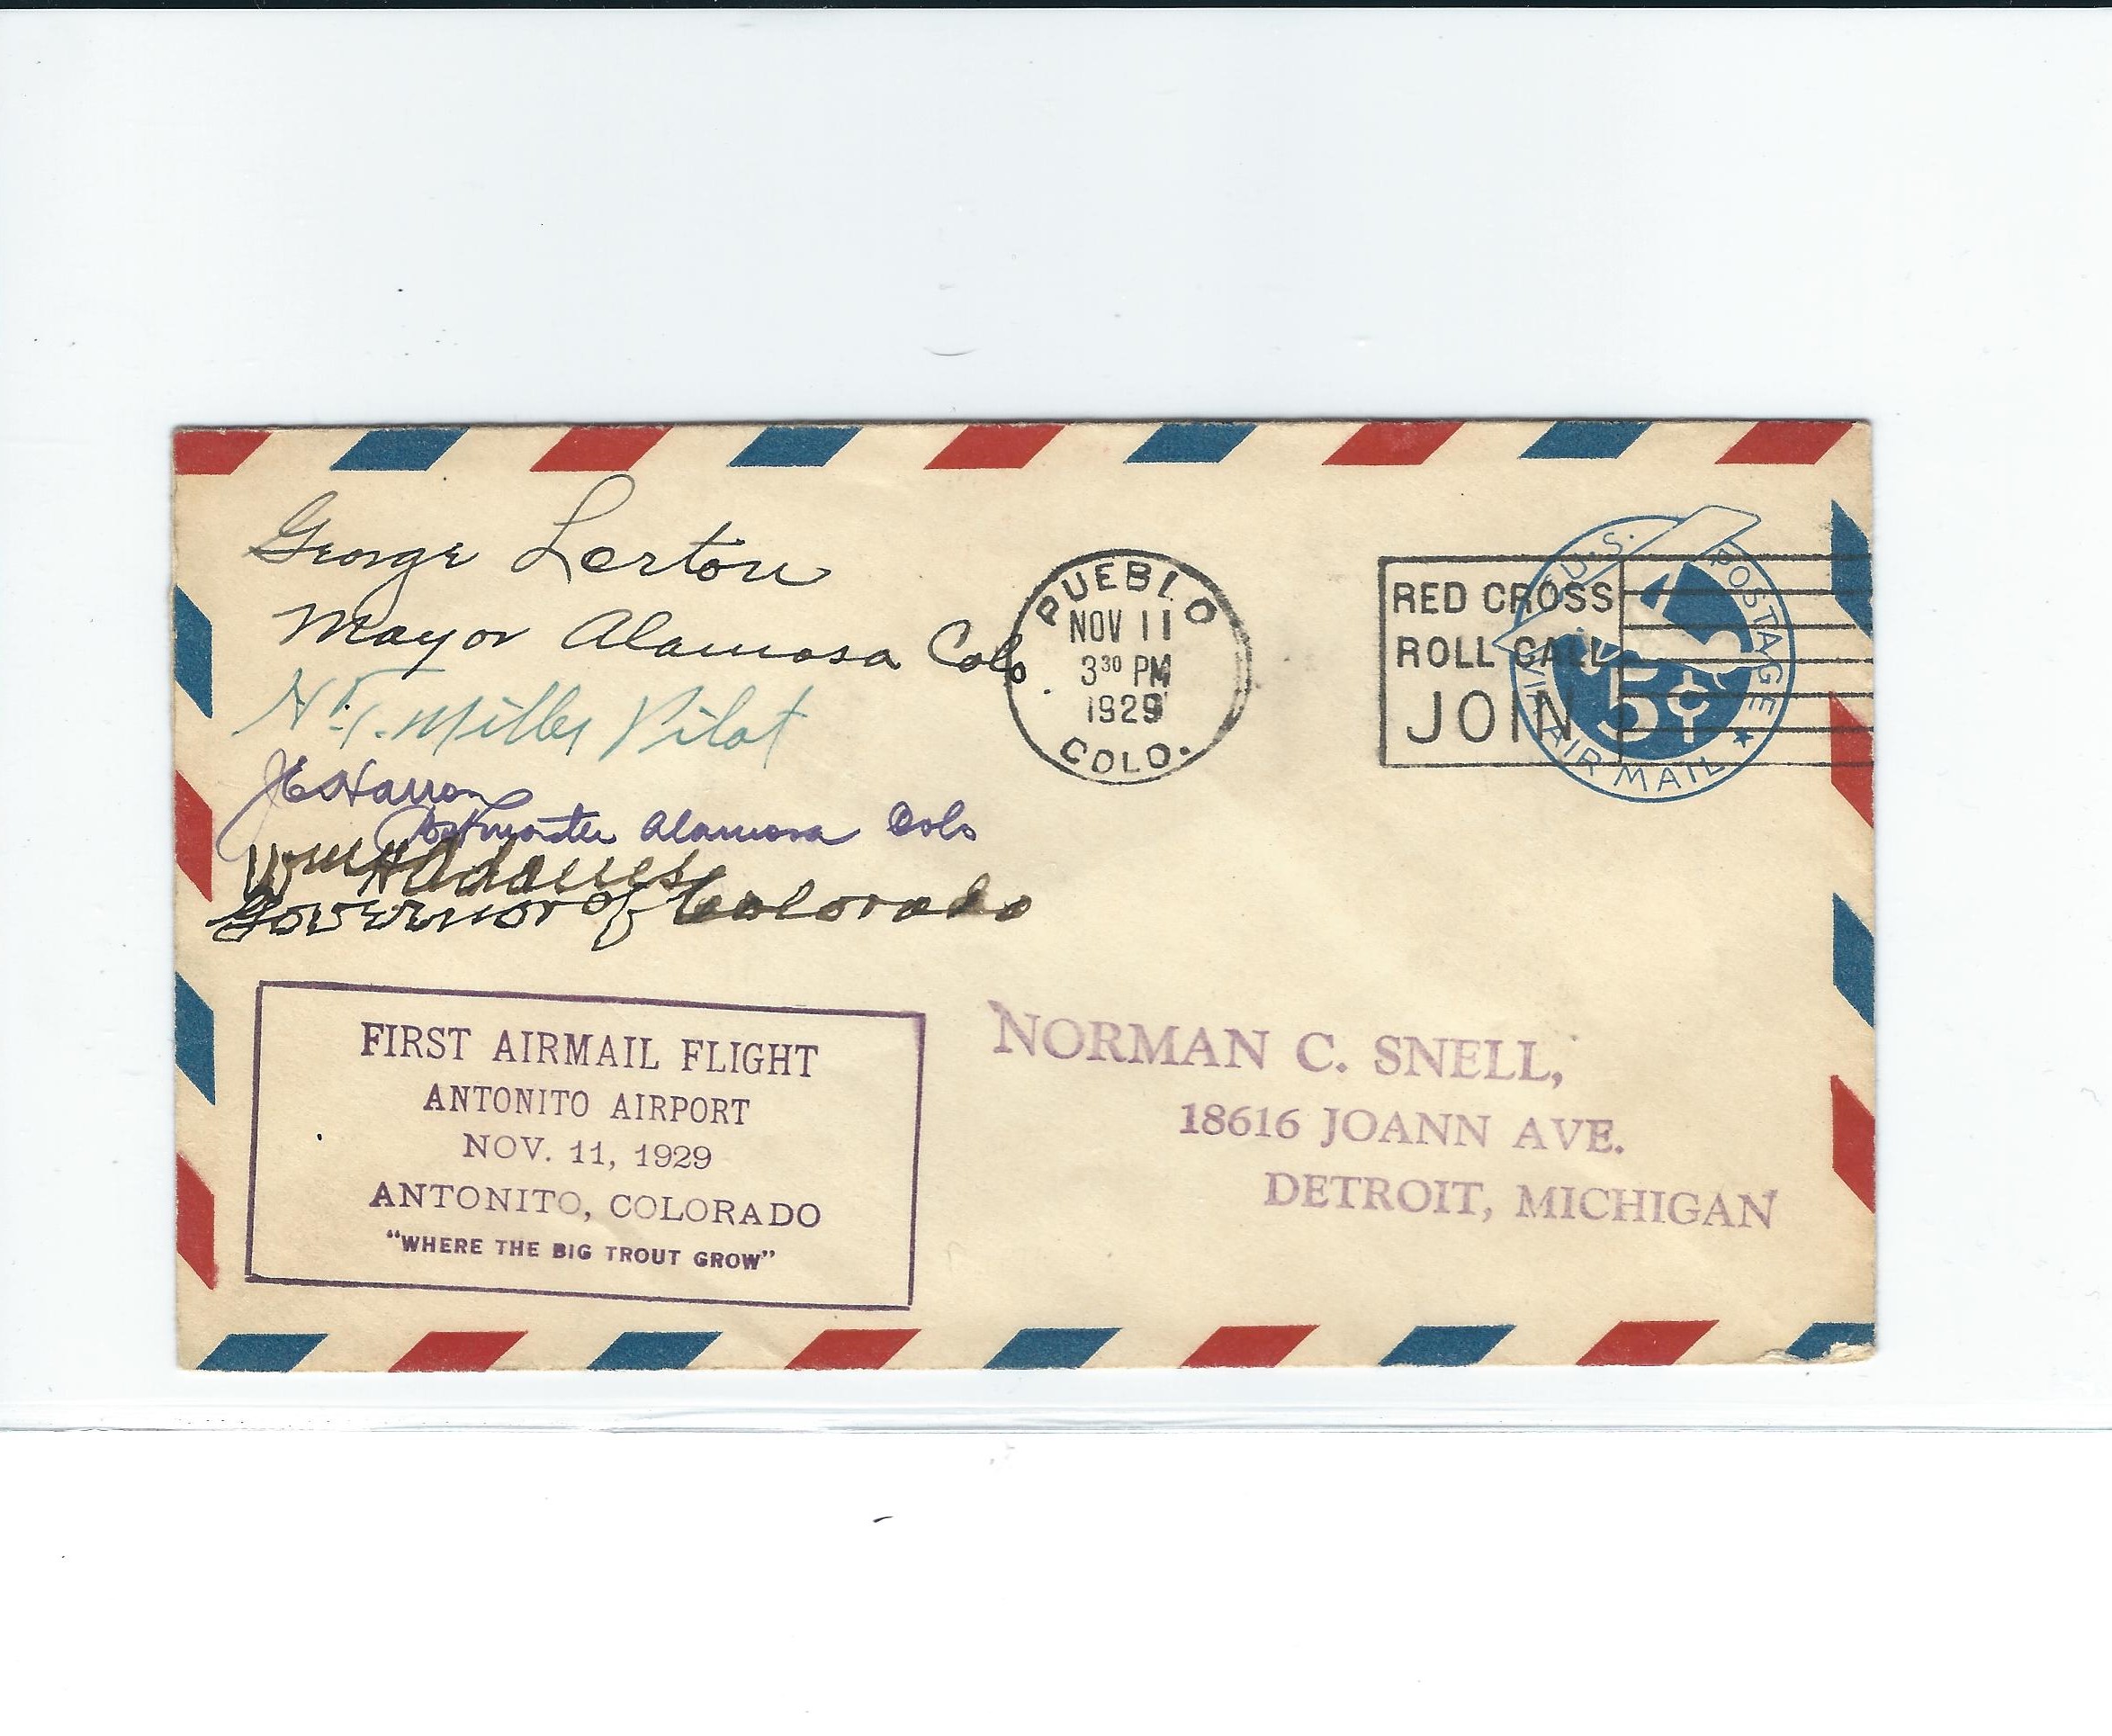 George Lorton
Mayor Alamosa Colo
Miller Pilot
Postmaster Alamosa Colo
Wm H Adams
Governor of Colorado
PUEBLO
NOV 11
3 30 PM
1929
COLO.
RED CROSS
ROLL CALL
JOIN
U.S. POSTAGE
5¢
VIA AIR MAIL
FIRST AIRMAIL FLIGHT
ANTONITO AIRPORT
NOV. 11, 1929
ANTONITO, COLORADO
"WHERE THE BIG TROUT GROW"
NORMAN C. SNELL,
18616 JOANN AVE.
DETROIT, MICHIGAN